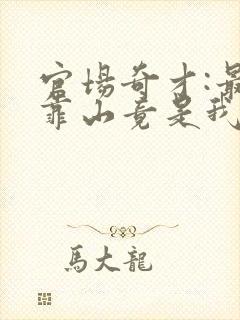 官場奇才:最
靠山竟是我
馬大龍